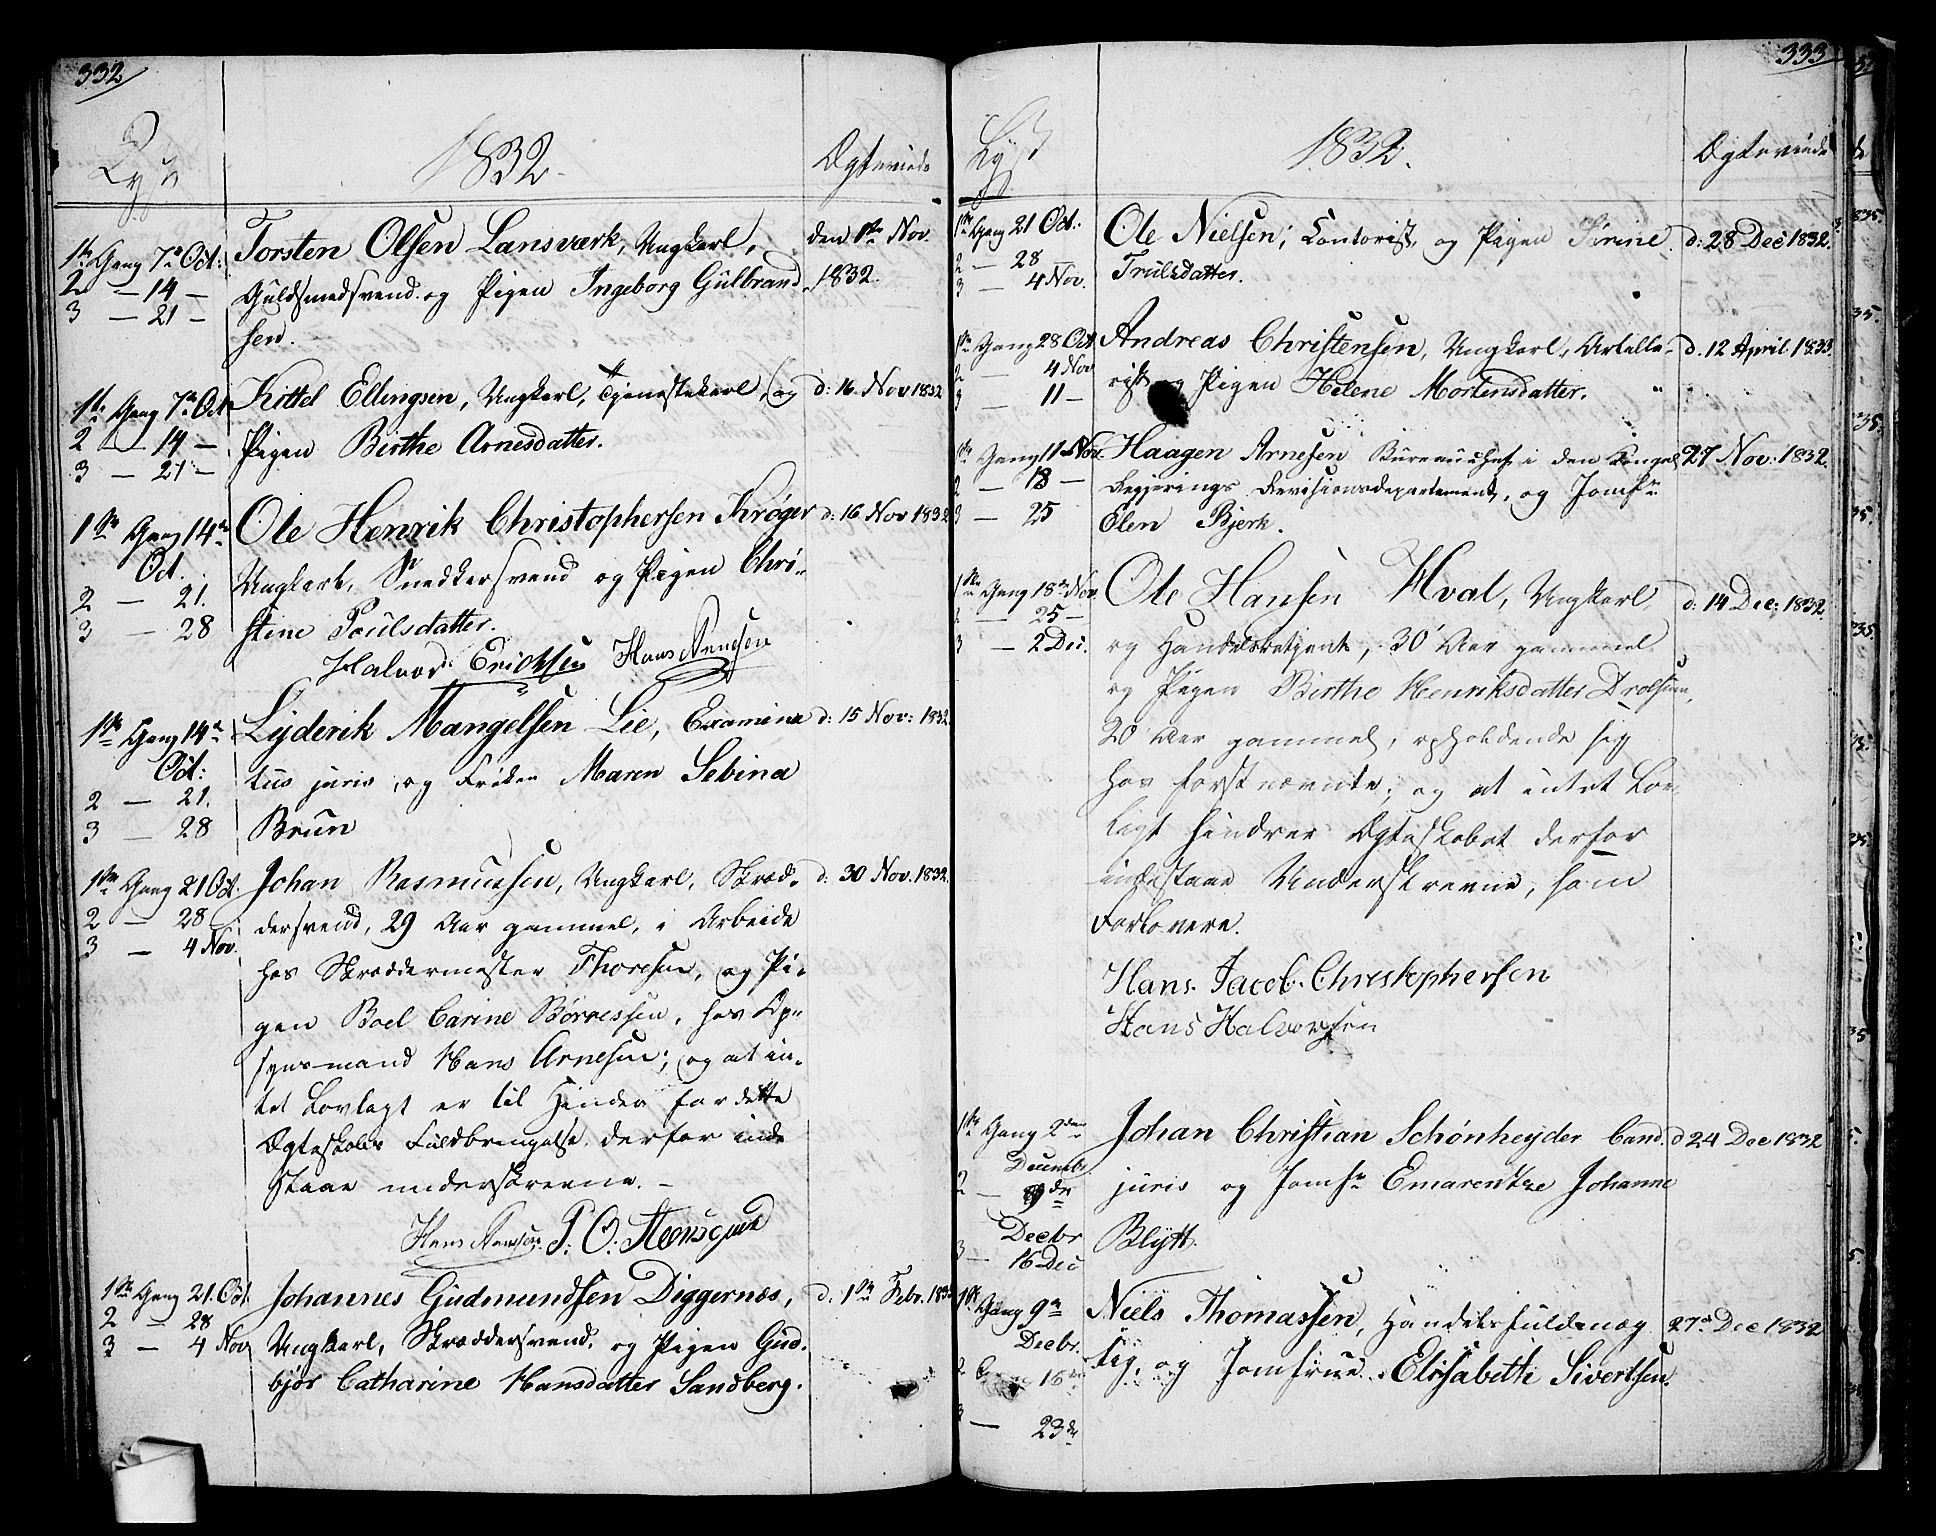 332
Lyst
1832.
Ægteviede
1ste Gang 7de Oct:
2 — 14 —
3 — 21 —
Torsten Olsen Lansværk, Ungkarl,
Guldsmedsvend og Pigen Ingeborg Gulbrand-
sen.
den 1ste Nov.
1832.
1ste Gang 7de Oct
2 — 14 —
3 — 21 —
Kittel Ellingsen, Ungkarl, Tjenestekarl, og
Pigen Birthe Arnesdatter.
d: 16 Nov 1832
1ste Gang 14de
Oct.
2 — 21.
3 — 28
Ole Henrik Christophersen Krøger
Ungkarl, Snedkersvend og Pigen Chri-
stine Poulsdatter.
Halvord Erichsen Hans Arnesen
d: 16 Nov 1832
1ste Gang 14de
Oct:
2 — 21.
3 — 28
Lyderik Mangelsen Lie, Examina
tus juris, og Frøken Maren Sebina
Brun
d: 15 Nov: 1832.
1ste Gang 21 Oct.
2 — 28
3 — 4 Nov.
Johan Rasmussen, Ungkarl, Skræd-
dersvend, 29 Aar gammel, i Arbeide
hos Skræddermester Thoresen, og Pi-
gen Boel Carine Børresen, hos Op-
synsmand Hans Arnesen; og at in-
tet Lovlagt er til Hinder for dette
Ægteskabs Fuldbringelse, derfor inde
staae underskrevne. —
Hans Arnesen. P. O.
d: 30 Nov. 1832.
1ste Gang 21. Oct.
2 — 28
3 — 4 Nov
Johannes Gudmundsen Diggernæs,
Ungkarl, Skræddersvend, og Pigen Gud-
bjør Catharine Hansdatter Sandberg.
d. 1ste Febr. 183
333
Lyst
1832.
Ægteviede
1ste Gang 21 Oct:
2 — 28 —
3 — 4 Nov.
Ole Nielsen; Contorist, og Pigen Sirine
Trulsdatter.
d: 28 Dec 1832.
1ste Gang 28 Oct
2 — 4 Nov
3 — 11 —
Andreas Christensen, Ungkarl, Artille-
rist og Pigen Helene Mortensdatter.
d. 12 April 1833
1ste Gang 11 Nov.
2 — 18 —
3 — 25
Haagen Arnesen Bureauchef i den Kongel
Regjerings Revisionsdepartement, og Jomfru
Elen Bjerk.
27 Nov: 1832.
1ste Gang 18de Nov.
2 — 25 —
3 — 2 Dec.
Ole Hansen Hval, Ungkarl
og Handelsbetjent, 30 Aar gammel
og Pigen Birthe Henriksdatter Drolsum,
20 Aar gammel, opholdende sig
hos førstnævnte; og at intet Lov-
ligt hindrer Ægteskabet derfor
indestaae Underskrevne, som
Forlovere.
Hans Jacob Christophersen
Hans Halvorsen
d: 14 Dec; 1832.
1ste Gang 2den
Decembr
2 — 9de
Decbr
3 — 16 Dec
Johan Christian Schønheyder Cand.
juris og Jomfr Emarentze Johanne
Blytt.
d 24 Dec 1832
1ste Gang 9de
Decbr.
2 Gang 16de
3 — 23de
Niels Thomassen, Handelsfuldmæg
tig, og Jomfrue Elisabeth Sivertsen.
27de Dec 1832